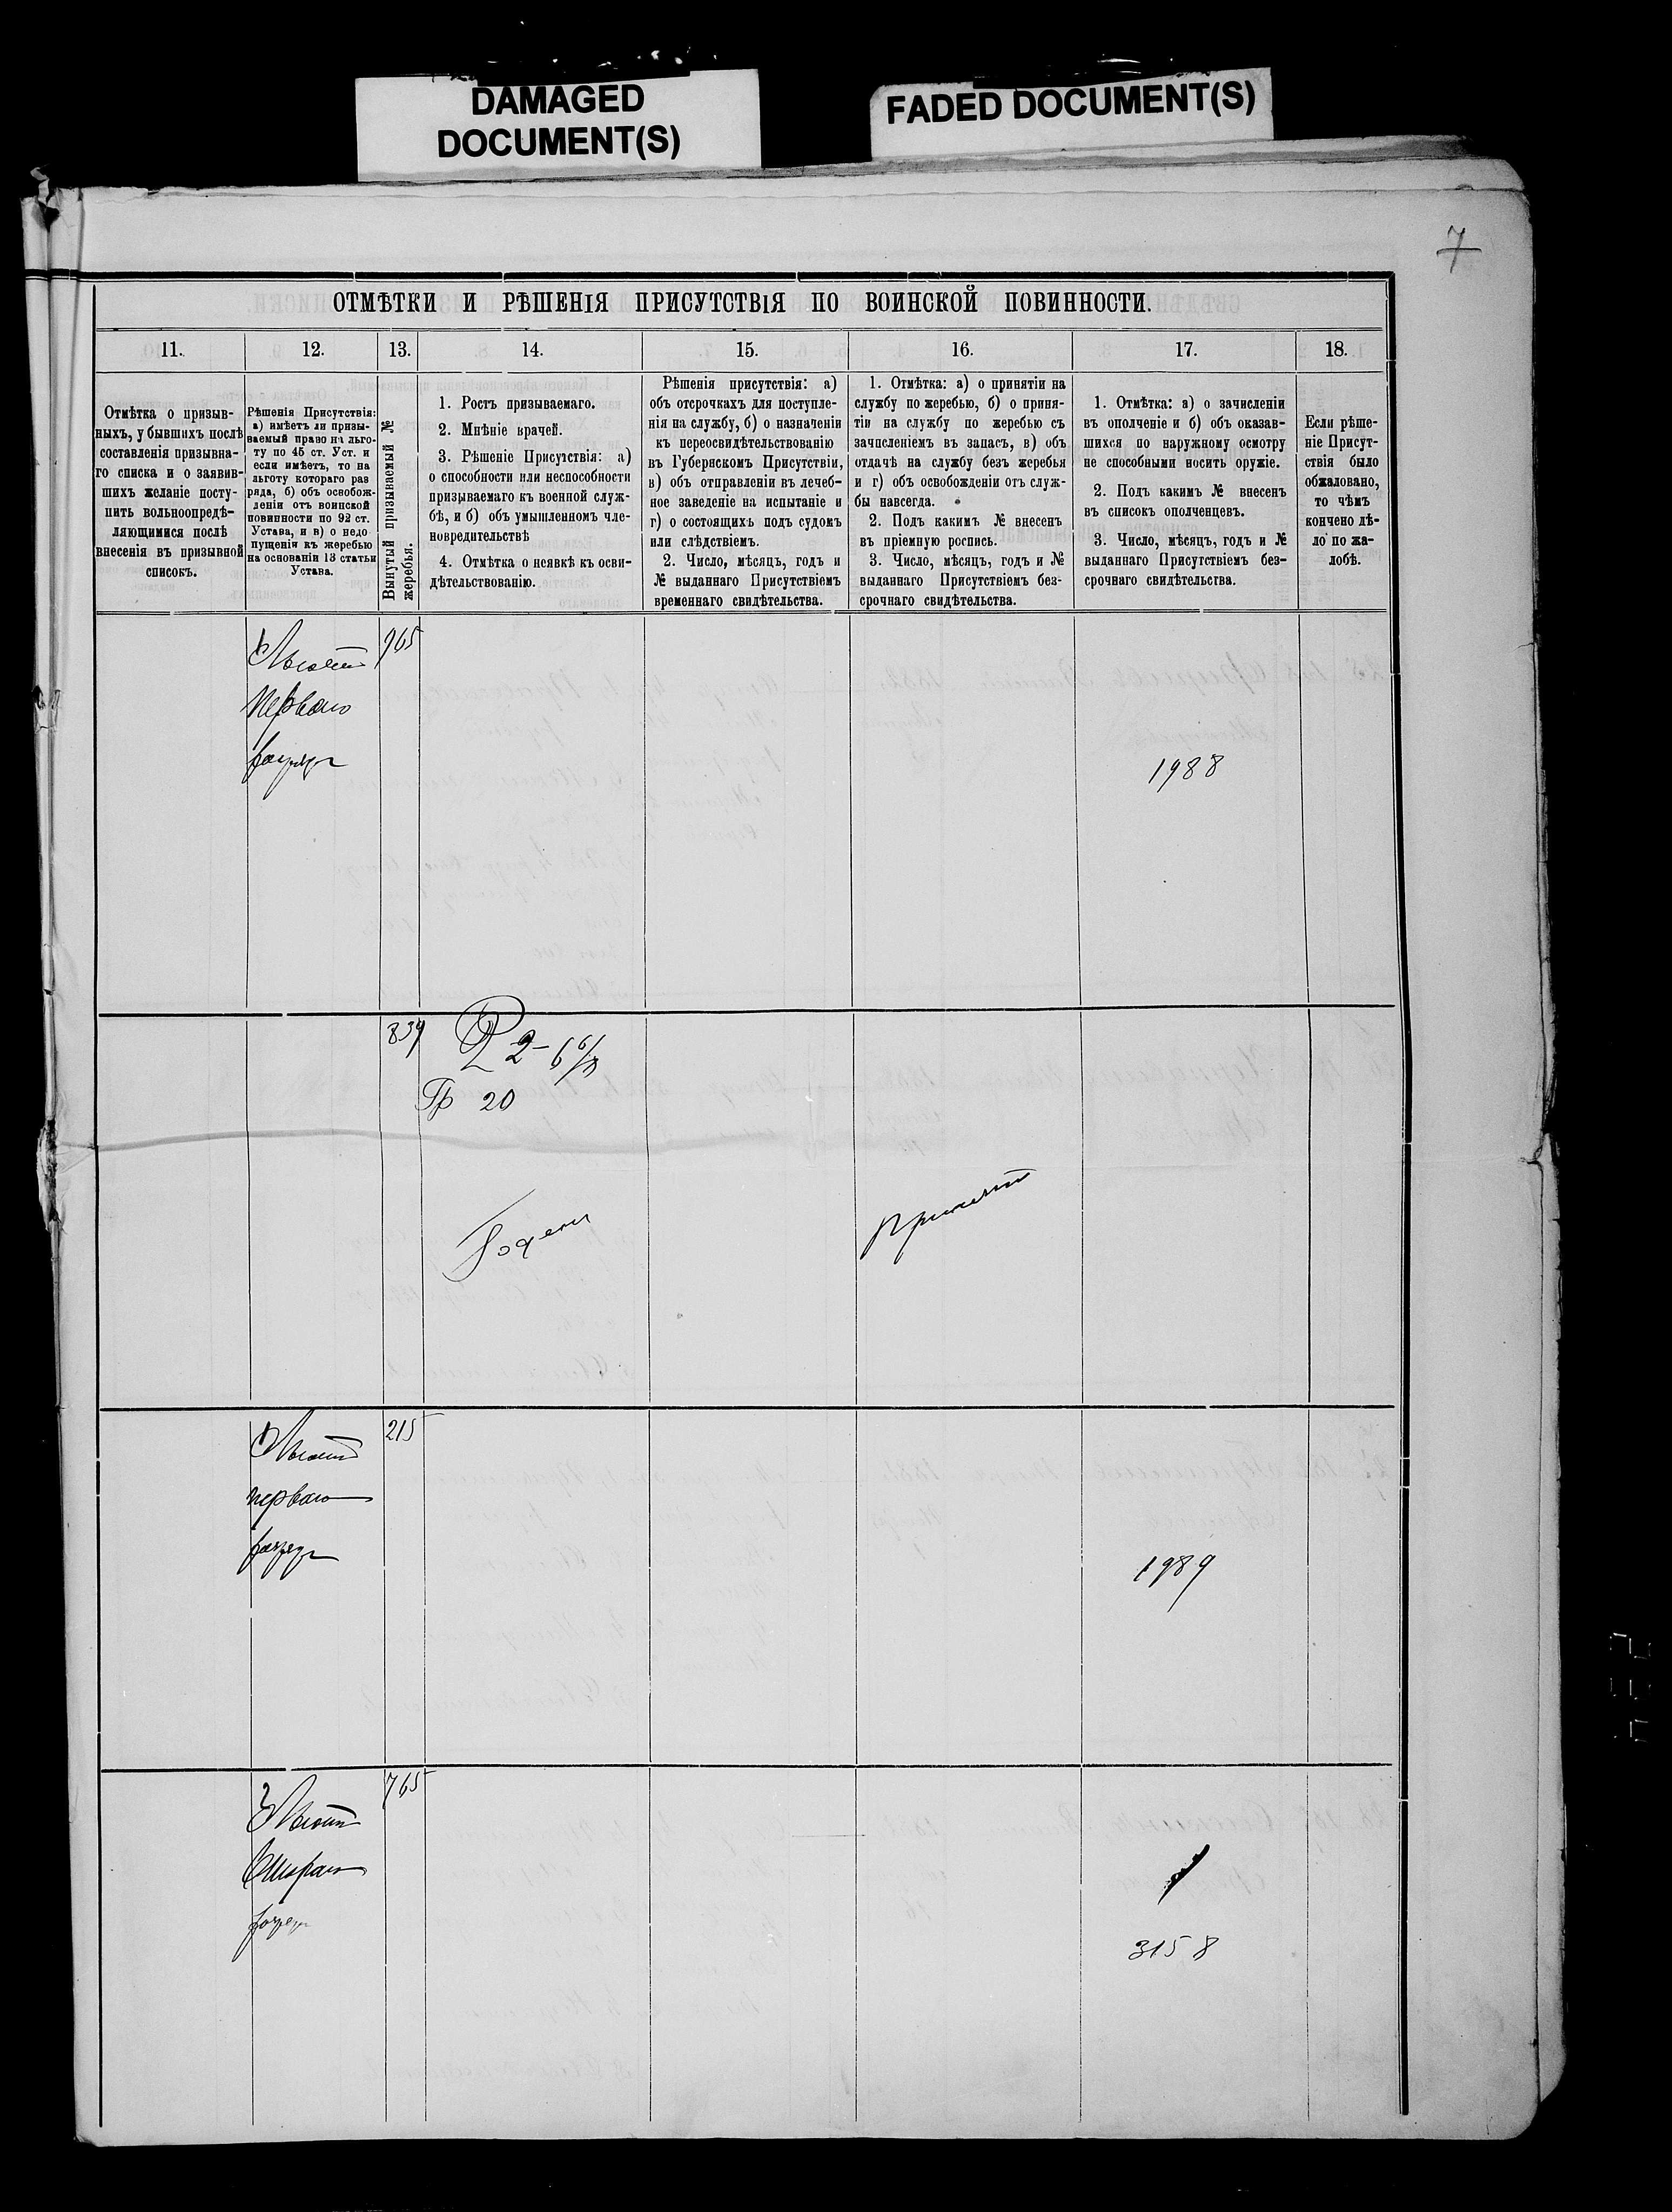 DAMAGED
DOCUMENT(S)
FADED DOCUMENT(S)
7
ОТМѢТКИ И РѢШЕНІЯ ПРИСУТСТВІЯ ПО ВОИНСКОЙ ПОВИННОСТИ.
11.
12.
13.
14.
15.
16.
17.
18.
Отмѣтка о призыв-
ныхъ, убывшихъ послѣ
составленія призывна-
го списка и о заявив-
шихъ желаніе посту-
пить вольноопредѣ-
ляющимися послѣ
внесенія въ призывной
списокъ.
Рѣшенія Присутствія:
а) имѣетъ ли призы-
ваемый право на льго-
ту по 45 ст. Уст. и
если имѣетъ, то на
льготу котораго раз
ряда, б) объ освобож-
деніи отъ воинской
повинности по 92 ст.
Устава, и в) о недо
пущеніи къ жеребью
на основаніи 13 статьи
Устава.
Вынутый призываемый №
жеребья.
1. Ростъ призываемаго.
2. Мнѣніе врачей.
3. Рѣшеніе Присутствія: а)
о способности или неспособности
призываемаго къ военной служ-
бѣ, и б) объ умышленномъ чле-
новредительствѣ
4. Отмѣтка о неявкѣ къ осви-
дѣтельствованію.
Рѣшенія присутствія: а)
объ отсрочкахъ для поступле-
нія на службу, б) о назначеніи
къ переосвидѣтельствованію
въ Губернскомъ Присутствіи,
в) объ отправленіи въ лечеб-
ное заведеніе на испытаніе и
г) о состоящихъ подъ судомъ
или слѣдствіемъ.
2. Число, мѣсяцъ, годъ и
№ выданнаго Присутствіемъ
временнаго свидѣтельства.
1. Отмѣтка: а) о принятіи на
службу по жеребью, б) о приня-
тіи на службу по жеребью съ
зачисленіемъ въ запасъ, в) объ
отдачѣ на службу безъ жеребья
и г) объ освобожденіи отъ служ-
бы навсегда.
2. Подъ какимъ № внесенъ
въ пріемную роспись.
3. Число, мѣсяцъ, годъ и №
выданнаго Присутствіемъ без-
срочнаго свидѣтельства.
1. Отмѣтка: а) о зачисленіи
въ ополченіе и б) объ оказав-
шихся по наружному осмотру
не способными носить оружіе.
2. Подъ какимъ № внесенъ
въ списокъ ополченцевъ.
3. Число, мѣсяцъ, годъ и №
выданнаго Присутствіемъ без-
срочнаго свидѣтельства.
Если рѣше-
ніе Присут-
ствія было
обжаловано,
то чѣмъ
кончено дѣ-
ло по жа-
лобѣ.
1
965
Перваго
1988
839
Р 2 - 6 6/8
Гр 20
Годенъ
Принятъ
1
215
перваго
1989
2
765
Втораго
3158